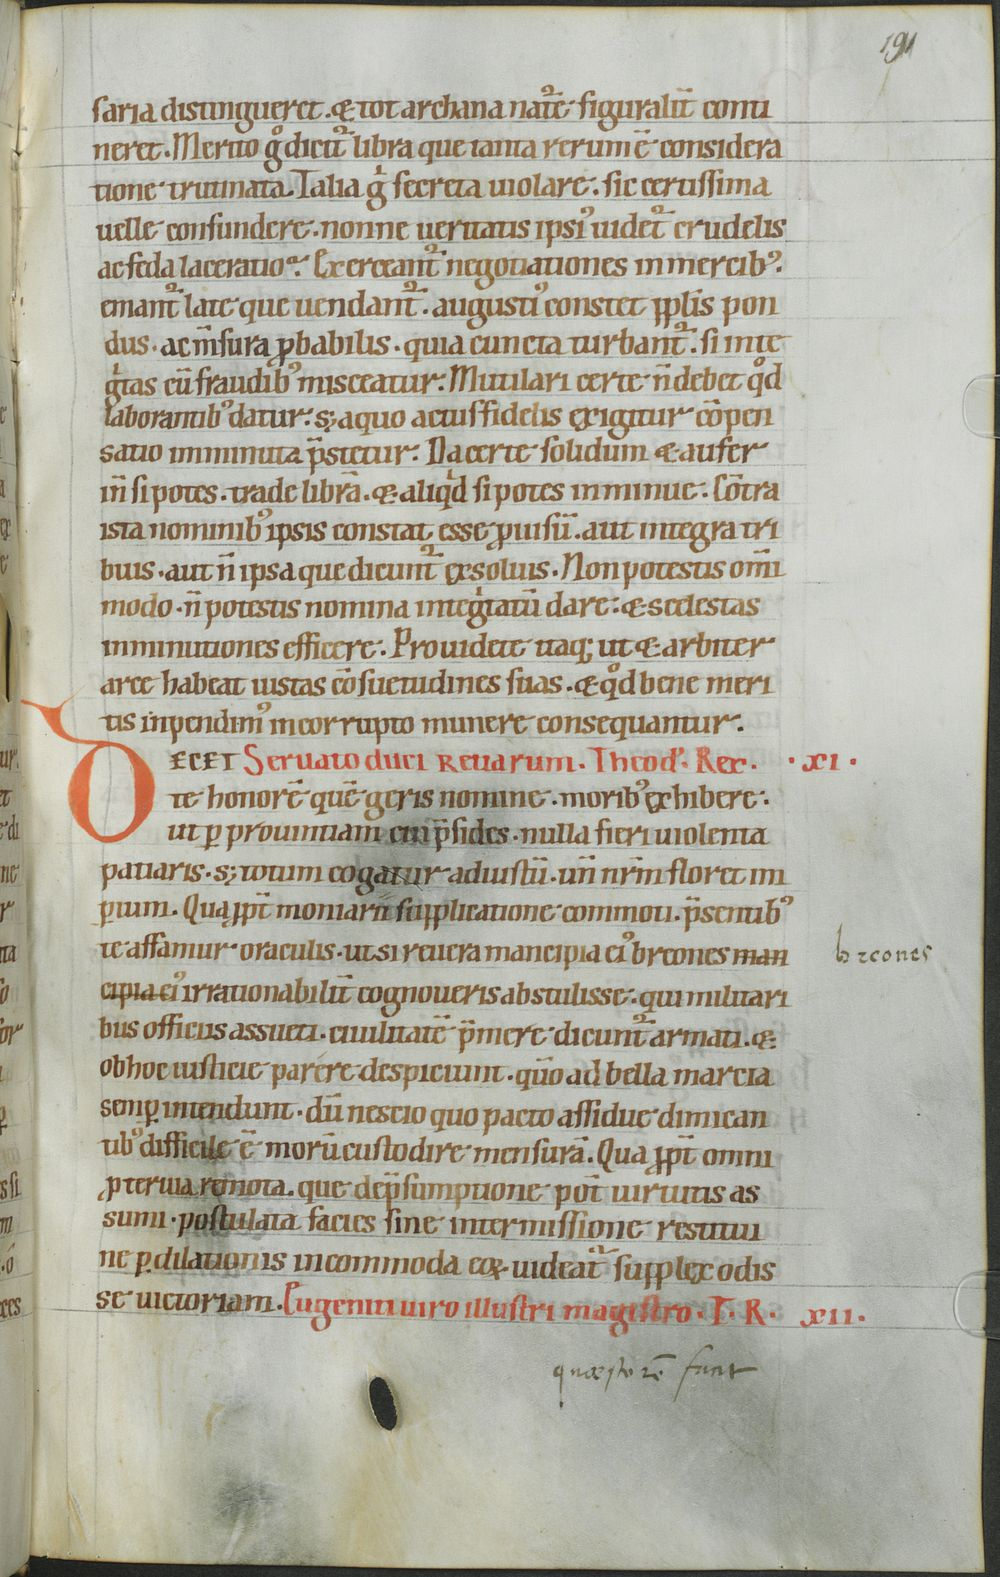 191
saria distingueret. & tot archana nat̃e figuraliũ conti
neret. Merito g̊ dicit̃ libra que tanta rerum ẽ considera
tione trutinata. Talia g̊ secreta uiolare. sic certissima
uelle confundere. nonne ueritatis ipsi᾽ uidet̃ crudelis
ac feda laceratio. Exerceant̃ negotiationes in mercib᾽.
emant̃ late que uendant̃. augusti᾽ constet pp̱lis pon
dus. ac m̃sura ꝓbabilis. quia cuncta turbant̃. si inte
gͥtas cũ fraudib᾽ misceatur. Mutilari certe ñ debet q̊d
laborantib᾽ datur. s; a quo actus fidelis exigitur cõpen
satio imminuta p̃stetur. Da certe solidum & aufer
iñ si potes. trade librã. & aliq̊d si potes inminue. Cõtra
ista nominib᾽ ipsis constat esse ꝓuisũ. aut integra tri
buis. aut ñ ipsa que dicunt̃ exsoluis. Non potestis om̃i
modo. ñ potestis nomina integͥtatũ dare. & scelestas
inminutiones efficere. Prouidete itaq; ut & arbiter
arce habeat iustas cõsuetudines suas. & q̊d bene meri
tis inpendim᾽ incorrupto munere consequantur.
DECET Seruato duci Retiarum. Theod᾽. Rex. · XI ·
te honorẽ quẽ geris nomine. morib᾽ exhibere.
ut ꝑ prouintiam cui p̃sides. nulla fieri uiolenta
patiaris. s; totum cogatur ad iustũ. uñ nr̃m floret im
ꝑium. Qua ꝓpt̃ moniarii supplicatione commoti. p̃sentib᾽
te affamur oraculis. ut si reuera mancipia ei᾽ breones man
cipia ei᾽ irrationabilit̃ cognoueris abstulisse. qui militari
breones
bus officiis assueti. ciuilitatẽ p̃mere dicunt̃ armati. &
ob hoc iusticie parere despiciunt. qũo ad bella marcia
semꝑ intendunt. dũ nescio quo pacto assidue dimican
tib᾽ difficile ẽ morũ custodire mensurã. Qua ꝓpt̃ omni
ꝓteruia remota. que de p̃sumptione pot̃ uirtutis as
sumi. postulata facies sine intermissione restitui
ne ꝑ dilationis incommoda eoꝝ uideat̃ supplex odis
se uictoriam. Eugeniti uiro illustri magistro. T. R. XII.
quæstorẽ facit